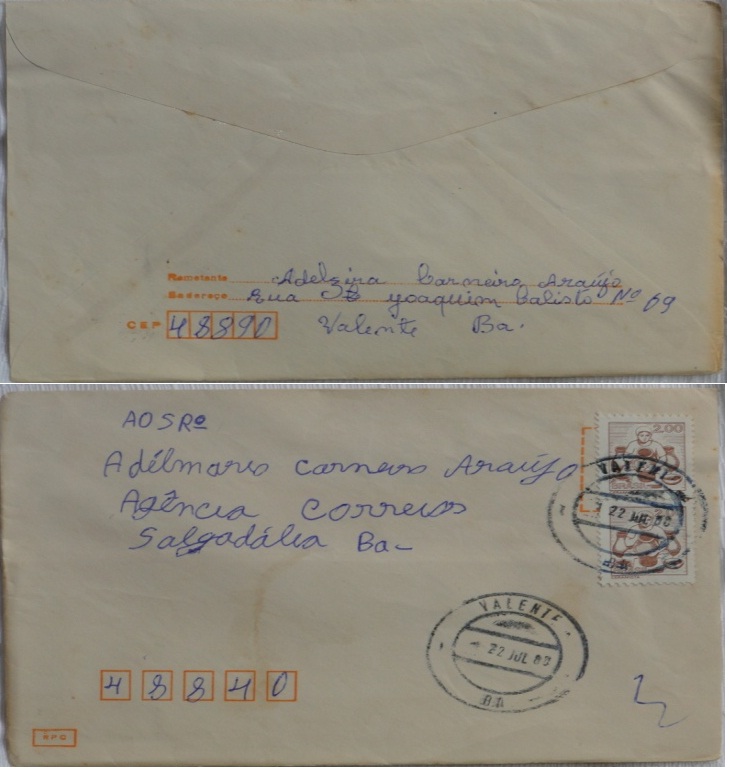 Remetente Adelzira Carneiro Araújo
Endereço Rua Joaquim Calisto Nº 69
CEP 48890 Valente Ba.
AO SRº
Adélmario Carneiro Araújo
Agência Correios
Salgadália Ba-
2.00
VALENTE
22 JUL 80
BA
VALENTE
22 JUL 80
BA
48840
RPC